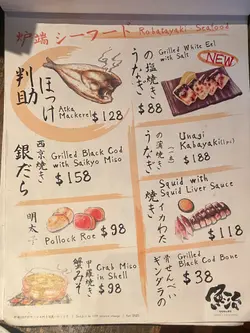 炉端 シーフード Robatayaki - Seafood
判助
ほっけ
Atka
Mackerel
$128
うなぎ
の塩焼き
Grilled White Eel
with Salt
NEW
$88
銀だら
西京焼き
Grilled Black Cod
with Saikyo Miso
$158
うなぎ
の蒲焼き
Unagi
Kabayaki
$188
明太子
Pollock Roe
$98
イカわた
焼き
Squid with
Squid Liver Sauce
$118
蟹みそ
甲羅焼き
Crab Miso
in Shell
$98
ギンダラの
骨せんべい
Grilled
Black Cod Bone
$38